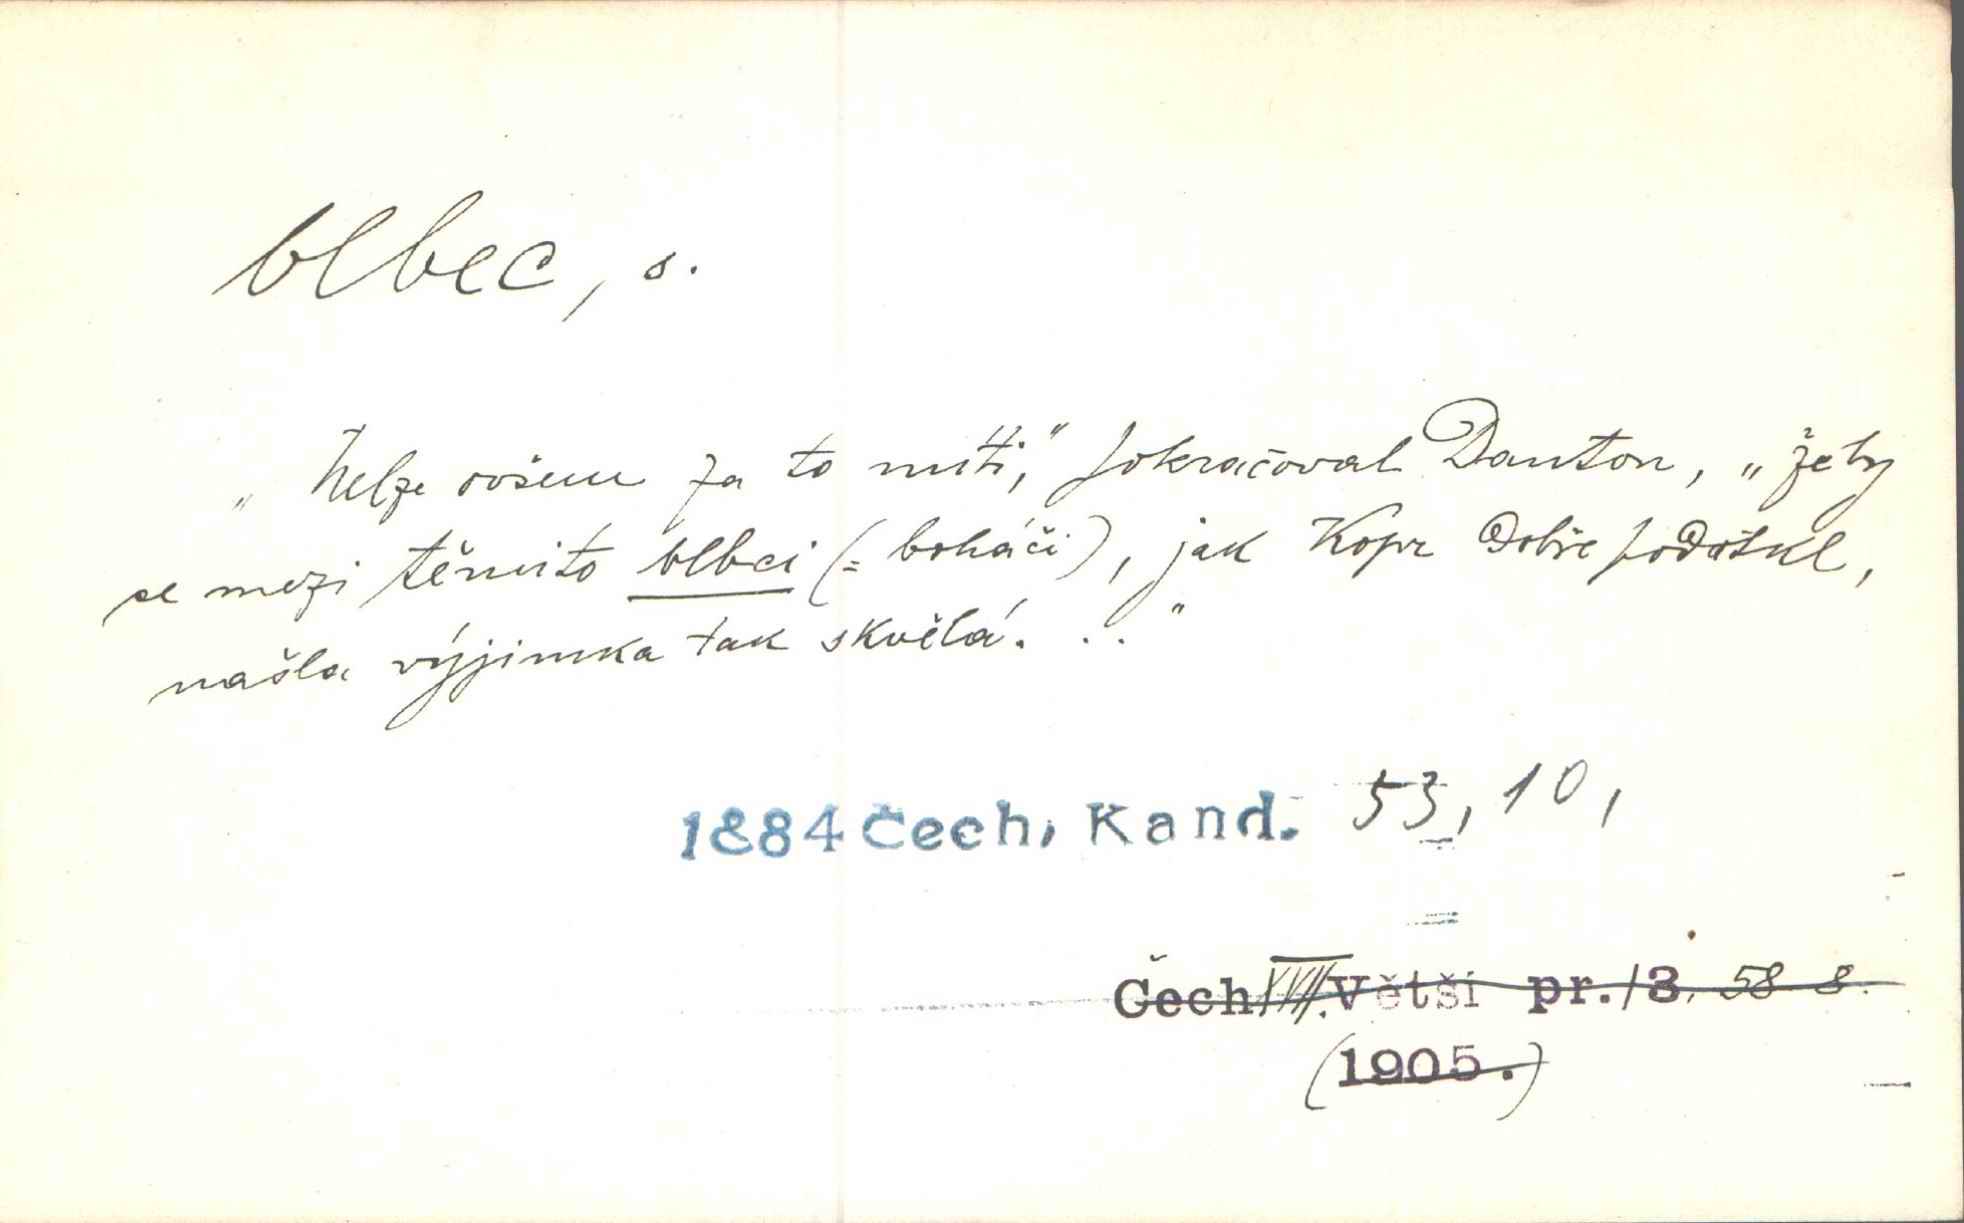 blbec, s.
„Nelze ovšem za to míti," pokračoval Danton, „žeby
se mezi těmito blbci (= boháči), jak Kopr dobře podotkl,
našla výjimka tak skvělá. . ."
1884 Čech, Kand. 53, 10,
Čech XVII. Větší pr. /3. 58 8.
(1905.)